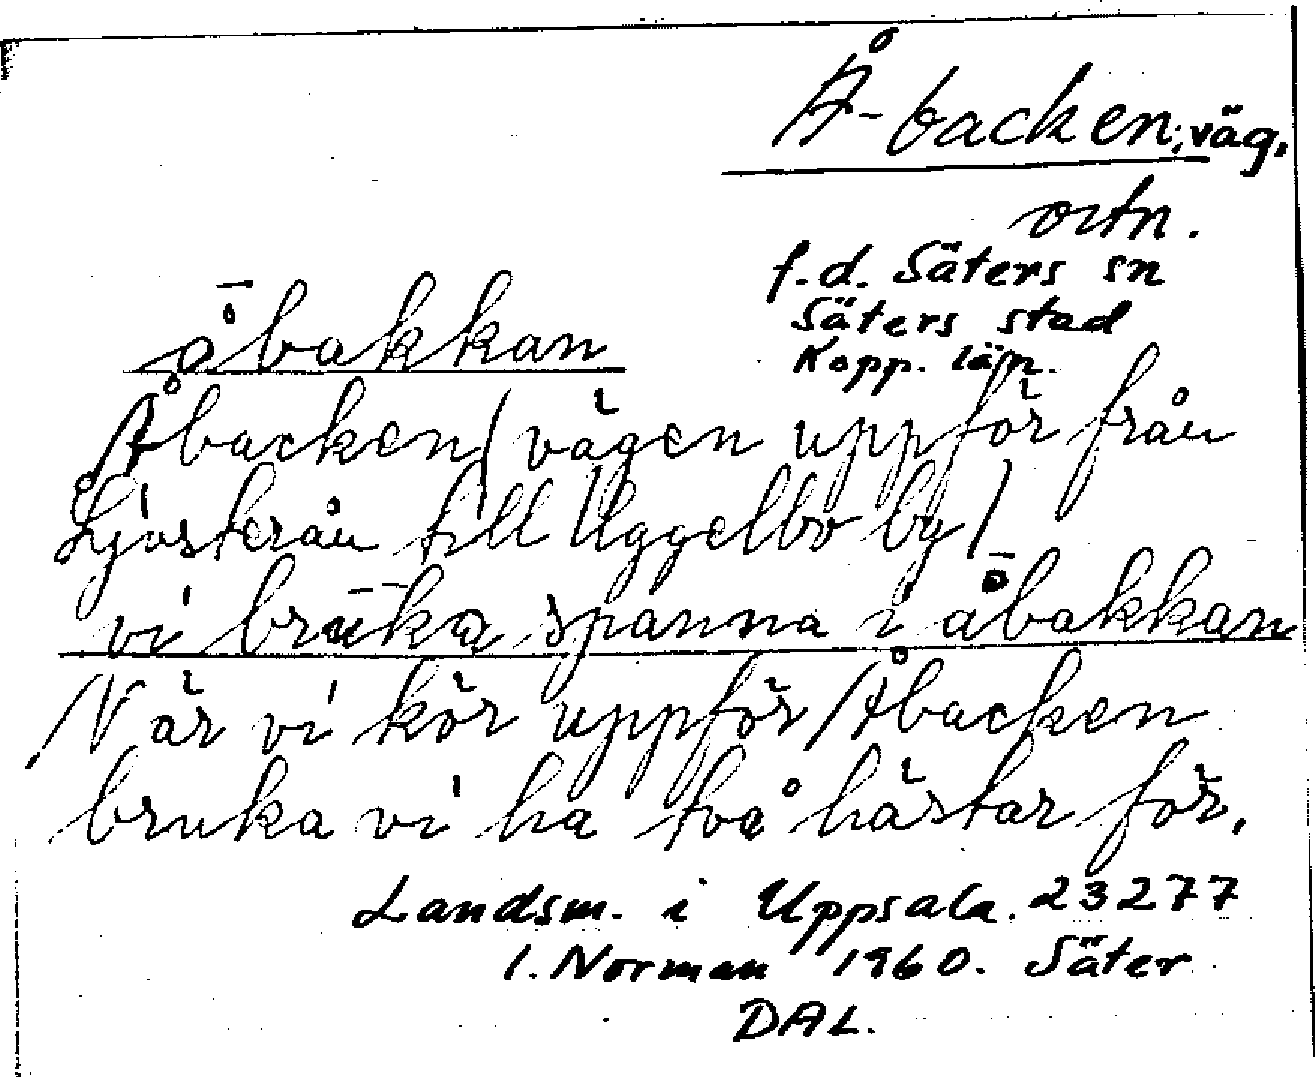 Å-backen; väg.
ortn.
f.d. Säters sn
Säters stad
Kopp. län.
å̄bakkan
Åbacken (vägen uppför från
Ljusterån till Uggelbo by)
vi brūka spanna i å̄bakkan
När vi kör uppför Åbacken
bruka vi ha två hästar för.
Landsm. i Uppsala. 23277
I. Norman 1960. Säter
DAL.